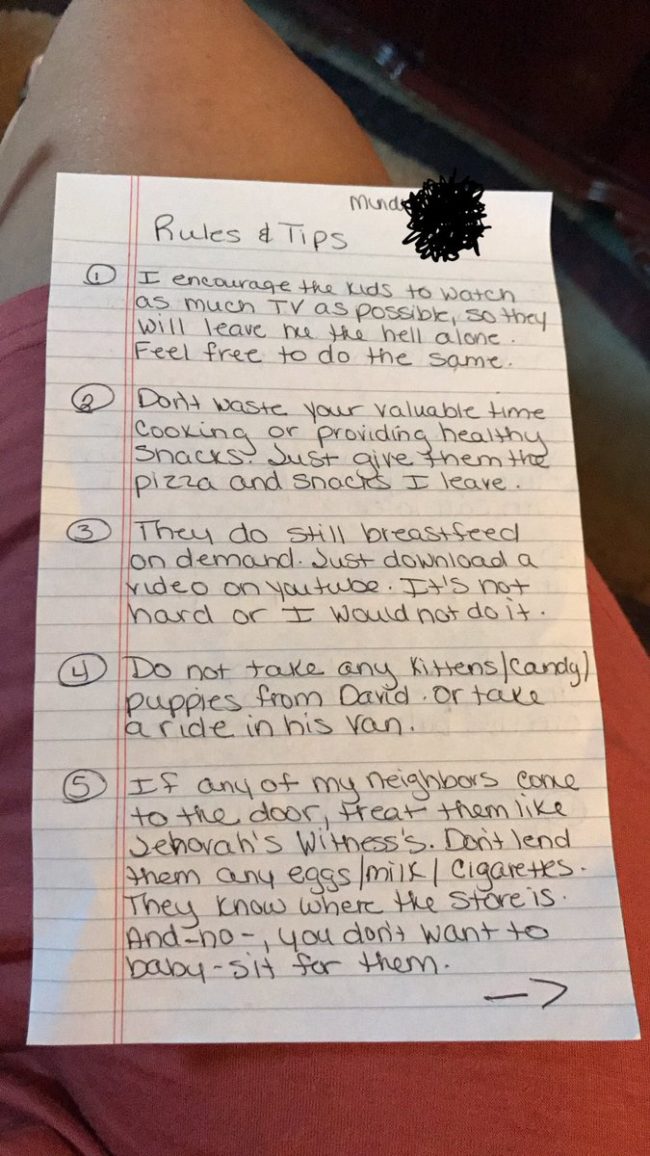 Rules & Tips
① I encourage the kids to watch
as much TV as possible, so they
will leave me the hell alone.
Feel free to do the same.
② Don't waste your valuable time
cooking or providing healthy
snacks. Just give them the
pizza and snacks I leave.
③ They do still breastfeed
on demand. Just download a
video on youtube. It's not
hard or I would not do it.
④ Do not take any kittens/candy/
puppies from David. Or take
a ride in his van.
⑤ If any of my neighbors come
to the door, treat them like
Jehovah's Witness's. Don't lend
them any eggs/milk/cigarettes.
They know where the store is.
And-no-, you don't want to
baby-sit for them.
→